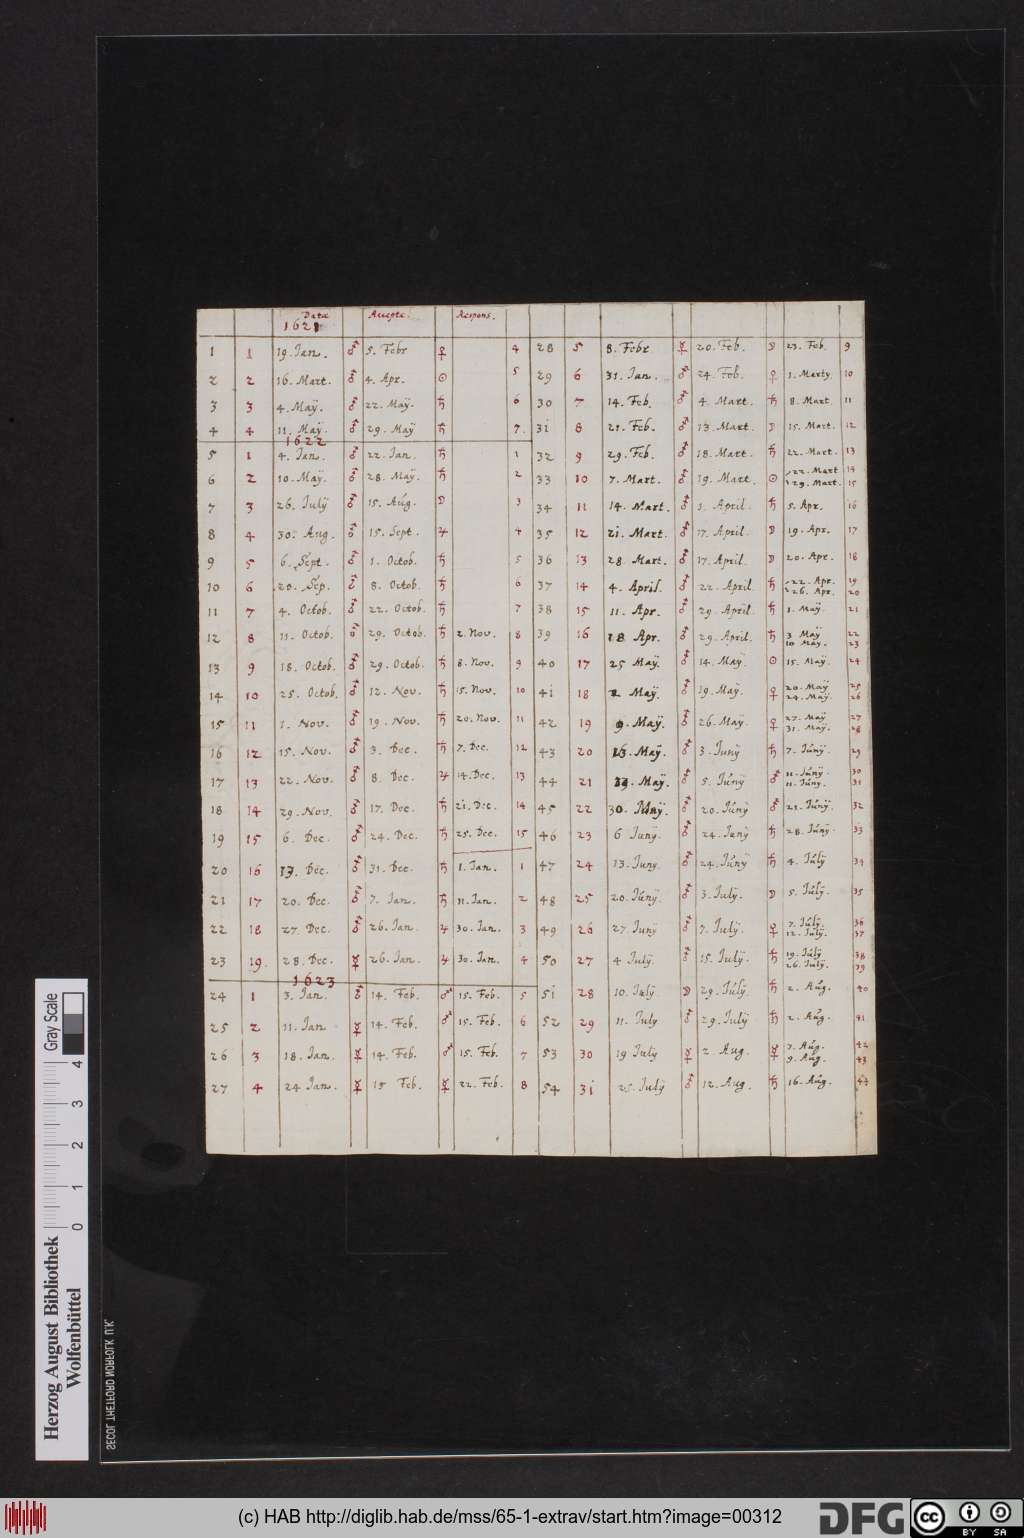 Datæ Accepte. Respons.
1621
1 1 19. Ian. ♂ 5. Febr ♀ 4
2 2 16. Mart. ♂ 4. Apr. ☉ 5
3 3 4. Maÿ. ♂ 22. Maÿ. ♄ 6
4 4 11. Maÿ. ♂ 29. Maÿ ♄ 7.
1622
5 1 4. Ian. ♂ 22. Ian. ♄ 1
6 2 10. Maÿ. ♂ 28. Maÿ. ♄ 2
7 3 26. Iulÿ ♂ 15. Aug. ☽ 3
8 4 30. Aug. ♂ 15. Sept. ♃ 4
9 5 6. Sept. ♂ 1. Octob. ♄ 5
10 6 20. Sep. ♂ 8. Octob. ♄ 6
11 7 4. Octob. ♂ 22. Octob. ♄ 7
12 8 11. Octob. ♂ 29. Octob. ♄ 2. Nov. 8
13 9 18. Octob. ♂ 29. Octob. ♄ 8. Nov. 9
14 10 25. Octob. ♂ 12. Nov. ♄ 15. Nov. 10
15 11 1. Nov. ♂ 19. Nov. ♄ 20. Nov. 11
16 12 15. Nov. ♂ 3. Dec. ♄ 7. Dec. 12
17 13 22. Nov. ♂ 8. Dec. ♃ 14. Dec. 13
18 14 29. Nov. ♂ 17. Dec. ♄ 21. Dec. 14
19 15 6. Dec. ♂ 24. Dec. ♄ 25. Dec. 15
20 16 13. Dec. ♂ 31. Dec. ♄ 1. Ian. 1
21 17 20. Dec. ♂ 7. Ian. ♄ 11. Ian. 2
22 18 27. Dec. ♂ 26. Ian. ♃ 30. Ian. 3
23 19. 28. Dec. ☿ 26. Ian. ♃ 30. Ian. 4
1623
24 1 3. Ian. ♂ 14. Feb. ♂ 15. Feb. 5
25 2 11. Ian ☿ 14. Feb. ♂ 15. Feb. 6
26 3 18. Ian. ☿ 14. Feb. ♂ 15. Feb. 7
27 4 24. Ian. ☿ 15 Feb. ☿ 22. Feb. 8
28 5 8. Febr ☿ 20. Feb. ☽ 23. Feb. 9
29 6 31. Ian. ♂ 24. Feb. ♀ 1. Marty. 10
30 7 14. Feb. ♂ 4. Mart. ♄ 8. Mart. 11
31 8 21. Feb. ♂ 13. Mart. ☽ 15. Mart. 12
32 9 29. Feb. ♂ 18. Mart. ♄ 22. Mart. 13
33 10 7. Mart. ♂ 19. Mart. ☉ 22. Mart 14
29. Mart. 15
34 11 14. Mart. ♂ 1. April. ♄ 5. Apr. 16
35 12 21. Mart. ♂ 17. April. ☽ 19. Apr. 17
36 13 28. Mart. ♂ 17. April. ☽ 20. Apr. 18
37 14 4. April. ♂ 22. April ♄ 22. Apr. 19
26. Apr. 20
38 15 11. Apr. ♂ 29. April. ♄ 1. Maÿ. 21
39 16 18. Apr. ♂ 29. April. ♄ 3. Maÿ 22
10 Maÿ. 23
40 17 25 Maÿ. ♂ 14. Maÿ. ☉ 15. Maÿ. 24
41 18 2. Maÿ. ♂ 19. Maÿ. ♀ 20. Maÿ 25
24. Maÿ. 26
42 19 9. Maÿ. ♂ 26. Maÿ ♀ 27. Maÿ 27
31. Maÿ. 28
43 20 16. Maÿ. ♂ 3. Iunÿ ♄ 7. Iunÿ. 29
44 21 Maÿ. ♂ 5. Iunÿ ♂ 11. Iunÿ. 30
11. Iuny. 31
45 22 30. Iunÿ. ♂ 20. Iunÿ ♂ 21. Iunÿ. 32
46 23 6 Iunÿ. ♂ 24. Iunÿ ♄ 28. Iunÿ. 33
47 24 13. Iuny. ♂ 24. Iunÿ ♄ 4. Iulÿ 34
48 25 20. Iunÿ. ♂ 3. Iulÿ. ☽ 5. Iulÿ. 35
49 26 27. Iunÿ ♂ 7. Iulÿ. ♀ 7. Iulÿ. 36
12. Iulÿ. 37
50 27 4 Iulÿ ♂ 15. Iulÿ. ♄ 19. Iulÿ 38
26. Iulÿ. 39
51 28 10. Iulÿ ☽ 29. Iulÿ. ♄ 2. Aug. 40
52 29 11. Iuly ♂ 29. Iulÿ ♄ 2. Aug. 41
53 30 19 Iulÿ ☿ 2. Aug. ☿ 7. Aug. 42
9. Aug. 43
54 31 25. Iulÿ ♂ 12. Aug. ♄ 16. Aug. 44
Herzog August Bibliothek
Wolfenbüttel
0 1 2 3 4
Gray Scale
SECOL THETFORD NORFOLK U.K.
(c) HAB http://diglib.hab.de/mss/65-1-extrav/start.htm?image=00312
DFG
cc
BY SA